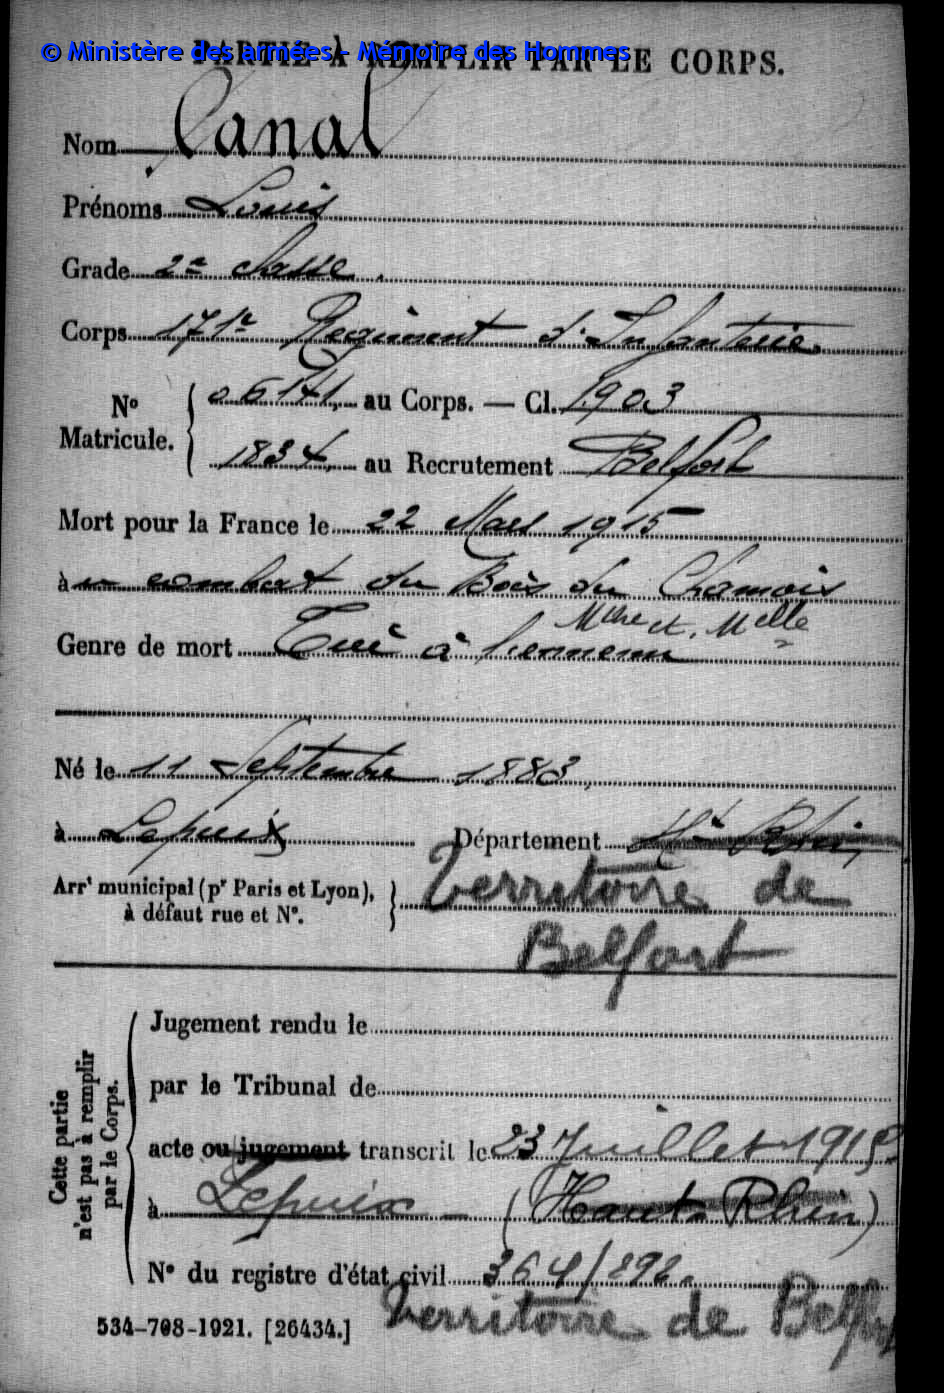 © Ministère des armées - Mémoire des Hommes
PARTIE À REMPLIR PAR LE CORPS.
Nom Canal
Prénoms Louis
Grade 2e classe.
Corps 171e Régiment d'Infanterie.
N° Matricule. { 06141, au Corps. — Cl. 1903
1834, au Recrutement Belfort
Mort pour la France le 22 Mars 1915
à u combat du Bois du Chamois
Mthe et Melle
Genre de mort Tué à l'ennemi
Né le 11 Septembre 1883,
à Lepuix Département Ht Rhin,
Arrt municipal (pr Paris et Lyon), } Territoire de
à défaut rue et N°.
Belfort
Cette partie n'est pas à remplir par le Corps.
Jugement rendu le
par le Tribunal de
acte ou jugement transcrit le 23 Juillet 1915
à Lepuix — (Haut Rhin)
N° du registre d'état civil 364/292.
Territoire de Belfort
534-708-1921. [26434.]